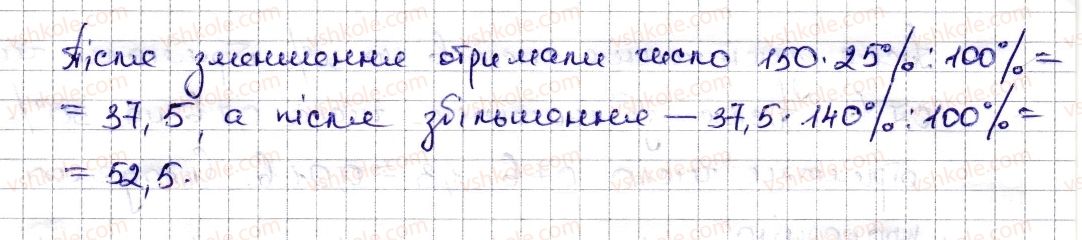 Після зменшення отримали число 150·25%:100%=
= 37,5, а після збільшення — 37,5·140%:100%=
= 52,5.